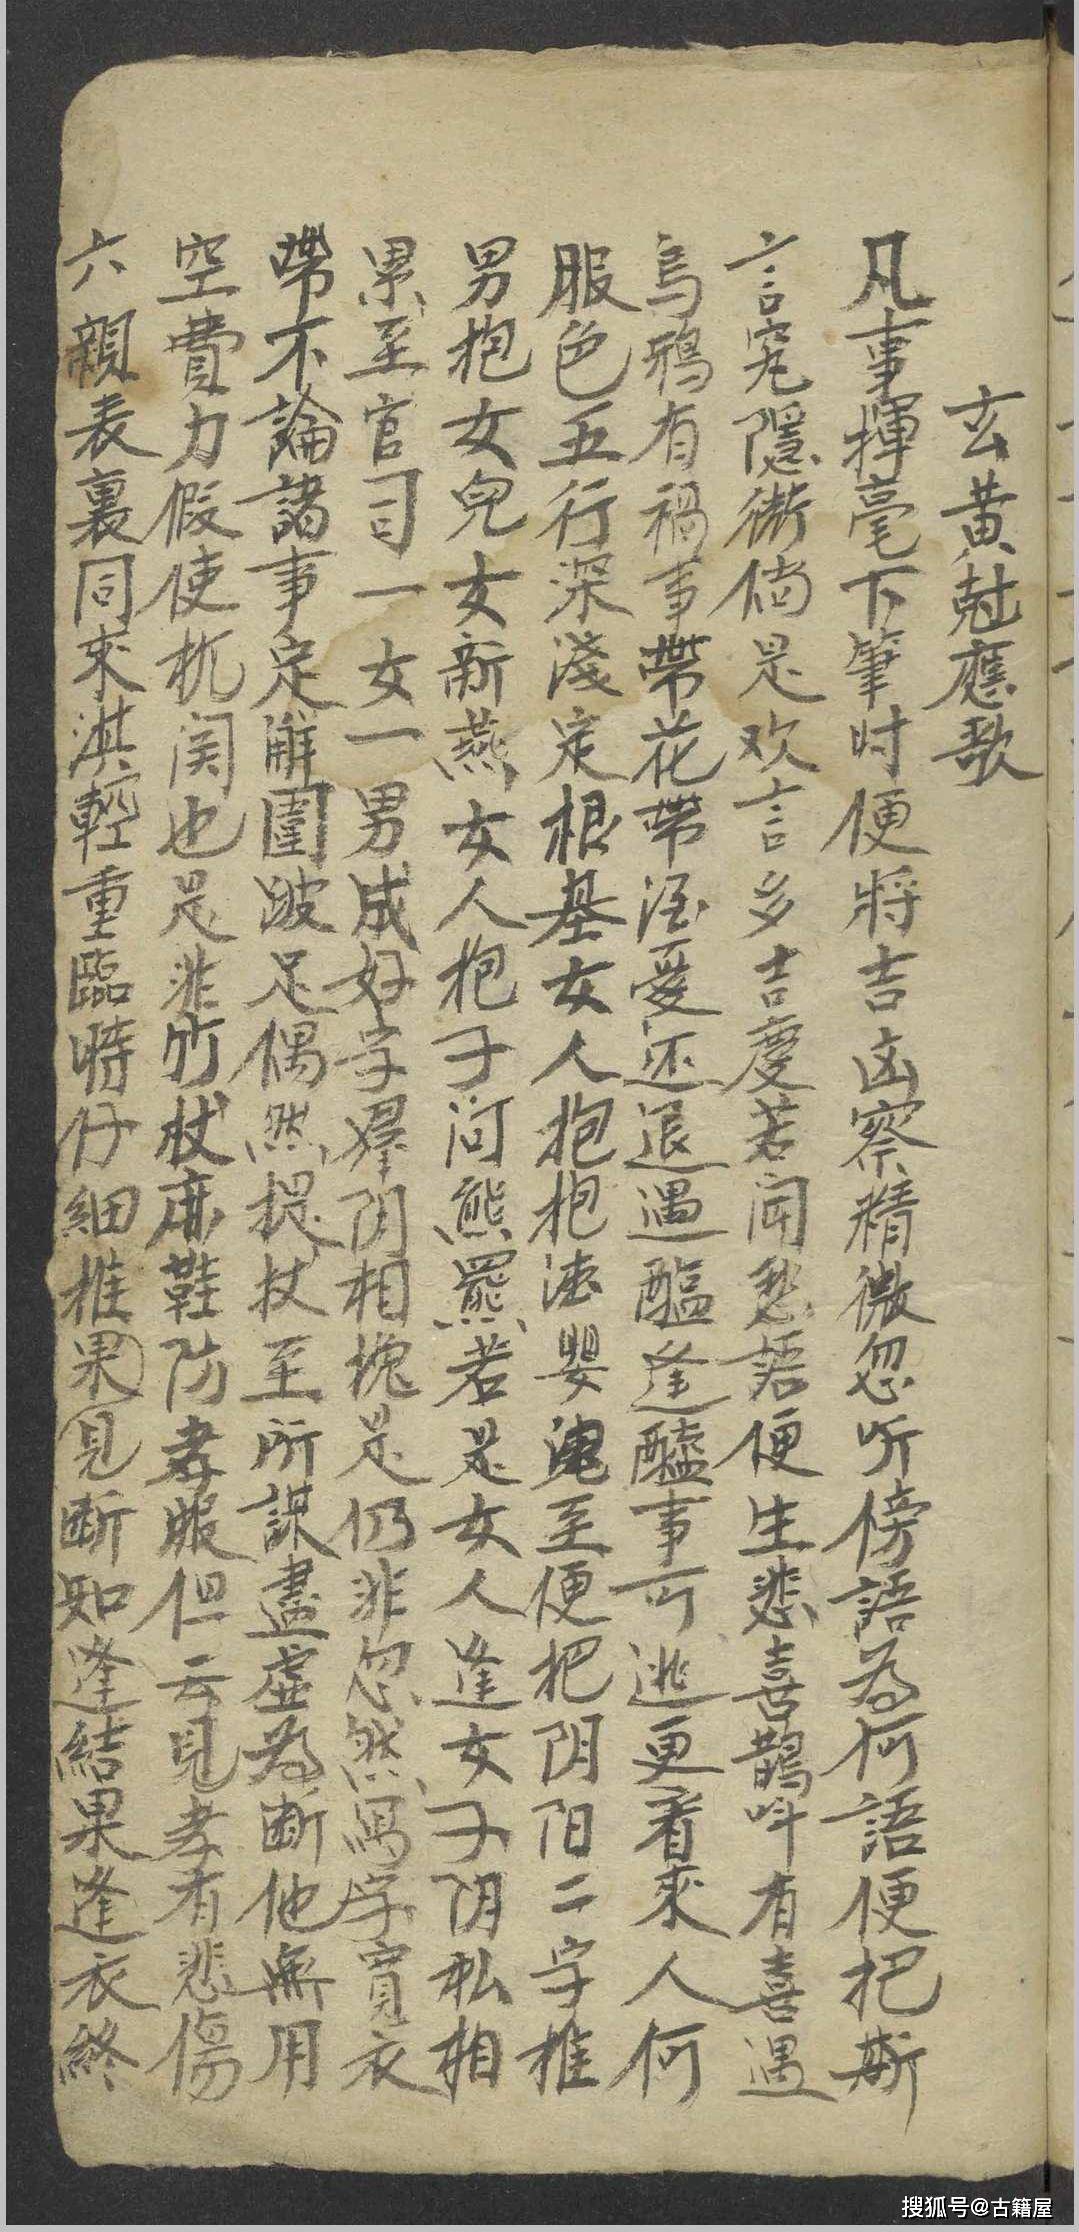 玄黄尅應歌
凡事揮毫下筆时便將吉凶察精微忽听傍語為何語便把斯
言究隱衔倘是欢言多吉慶若闻愁語便生悲喜鵲叫有喜遇
烏鴉有禍事帶花帶酒憂还退遇醢逢醯事可逃更看來人何
服色五行深淺定根基女人抱抱嬰至便把阴阳二字推
男抱女兒女新燕女人抱子问熊羆若是女人逢女子阴私相
累至官司一女一男成好字群阴相愧是仍非忽然寫字寛衣
帶不論諸事定解圍跛足偶然提杖至所謀盡虚為断他無用
空費力假使机関也是非竹杖麻鞋防孝服但云見孝有悲傷
六親表裏同來淇輕重臨時仔細推果見断知逢結果逢衣終
搜狐号@古籍屋